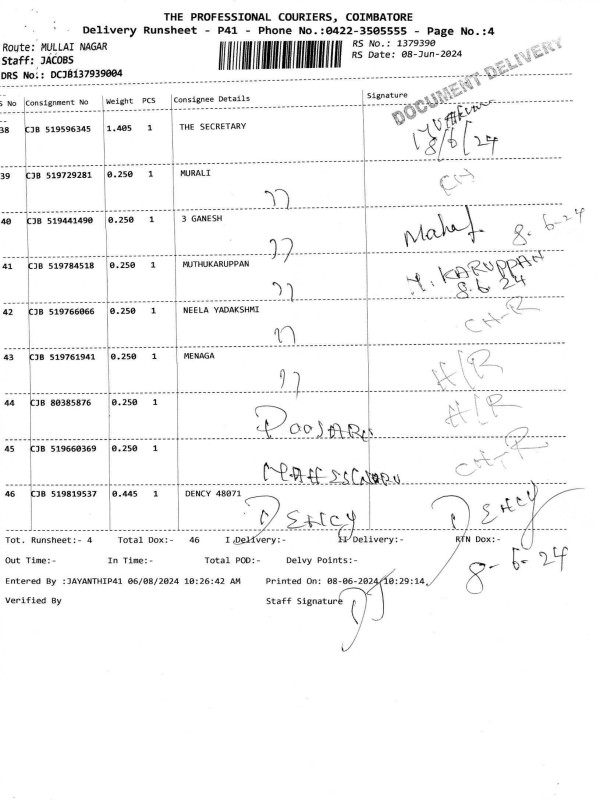 THE PROFESSIONAL COURIERS, COIMBATORE
Delivery Runsheet - P41 - Phone No.:0422-3505555 - Page No.:4
Route: MULLAI NAGAR
RS No.: 1379390
Staff: JACOBS
RS Date: 08-Jun-2024
DRS No.: DCJB137939004
DOCUMENT DELIVERY
S No Consignment No Weight PCS Consignee Details Signature
38 CJB 519596345 1.405 1 THE SECRETARY
8/6/24
39 CJB 519729281 0.250 1 MURALI
CH
40 CJB 519441490 0.250 1 3 GANESH
8-6-24
41 CJB 519784518 0.250 1 MUTHUKARUPPAN
KARUPPAN
8.6.24
42 CJB 519766066 0.250 1 NEELA YADAKSHMI
CH-R
43 CJB 519761941 0.250 1 MENAGA
H/R
44 CJB 80385876 0.250 1
H/R
45 CJB 519660369 0.250 1
CH-R
46 CJB 519819537 0.445 1 DENCY 48071
DENCY DENCY
Tot. Runsheet:- 4 Total Dox:- 46 I Delivery:- II Delivery:- RTN Dox:-
8-6-24
Out Time:- In Time:- Total POD:- Delvy Points:-
Entered By :JAYANTHIP41 06/08/2024 10:26:42 AM Printed On: 08-06-2024 10:29:14
Verified By Staff Signature